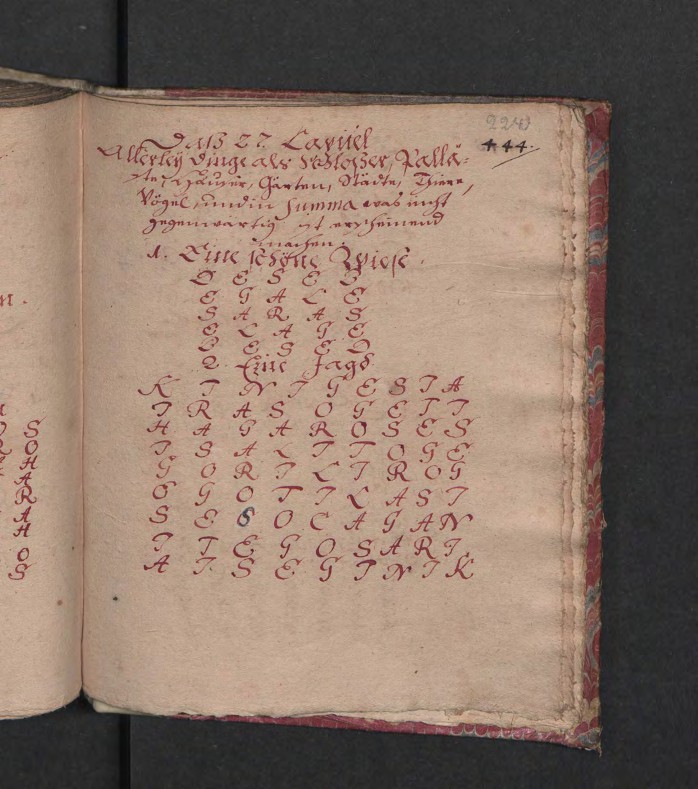 224
444.
Daß 27 Capitel
Allerley dinge als Schlößer, Pallä-
ste, Häuser, Gärten, Städte, Thiere,
Vögel, und in Summa was nicht
gegenwärtig ist erscheinend
machen.
1. Eine schöne Wiese.
D E S E L
E G A L E
S A R A S
E L A G E
L E S E D
2. Eine Jagd
K I N I G E S I A
I R A S O G E T I
H A G A R O S E S
I S A L I T O G E
G O R I L I R O G
E G O T I L A S I
S E S O C A G A N
I T E G O S A R I
A I S E G I N I K
n.
S
O
H
A
R
A
H
O
S